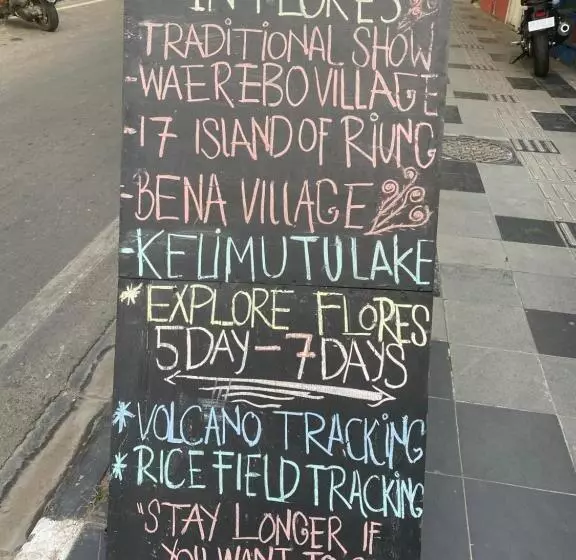 IN FLORES
TRADITIONAL SHOW
-WAEREBO VILLAGE
-17 ISLAND OF RIUNG
-BENA VILLAGE
-KELIMUTU LAKE
*EXPLORE FLORES
5 DAY - 7 DAYS
*VOLCANO TRACKING
*RICE FIELD TRACKING
"STAY LONGER IF
YOU WANT TO